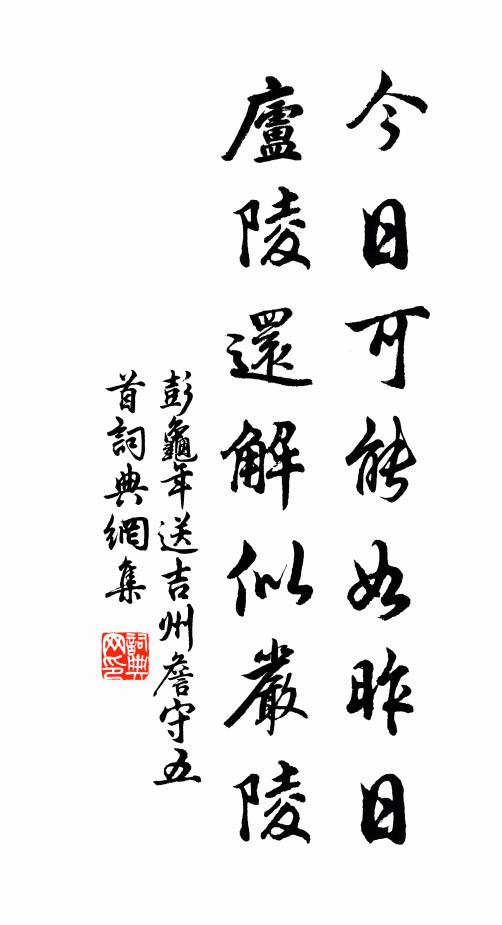 今日可能如昨日
廬陵還解似嚴陵
彭龜年送吉州詹守五
首詞典網集
詞典
网印